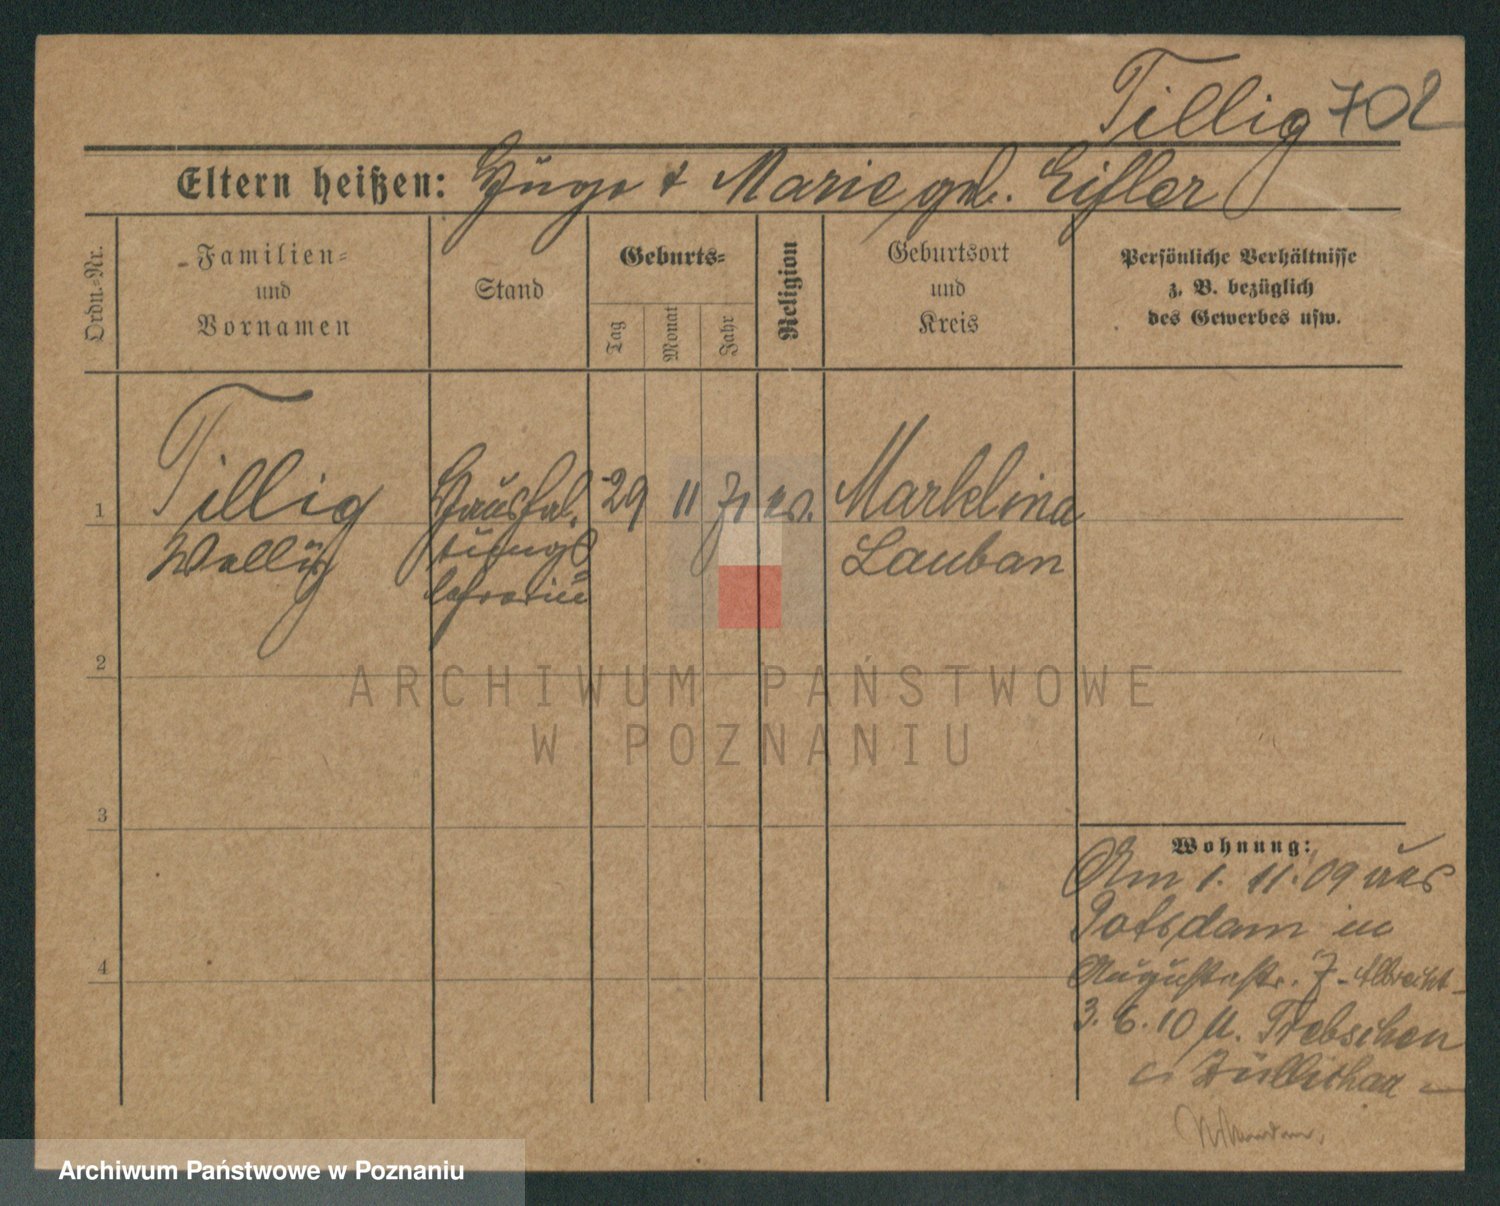 Tillig 702
Eltern heißen: Hugo & Marie geb. Eifler
Ordn.-Nr.
Familien-
und
Vornamen
Stand
Geburts-
Tag
Monat
Jahr
Religion
Geburtsort
und
Kreis
Persönliche Verhältnisse
z. B. bezüglich
des Gewerbes usw.
1
Tillig
Haushal-
29 11 71 ev.
Marklina
Welly
tungs
Lauban
lehrerin
2
3
4
Wohnung:
Am 1. 11. 09 aus
Potsdam in
Augustastr. 7 - Albrecht -
3. 6. 10 n. Trebschen
Züllichau
ARCHIWUM PAŃSTWOWE
W POZNANIU
Archiwum Państwowe w Poznaniu